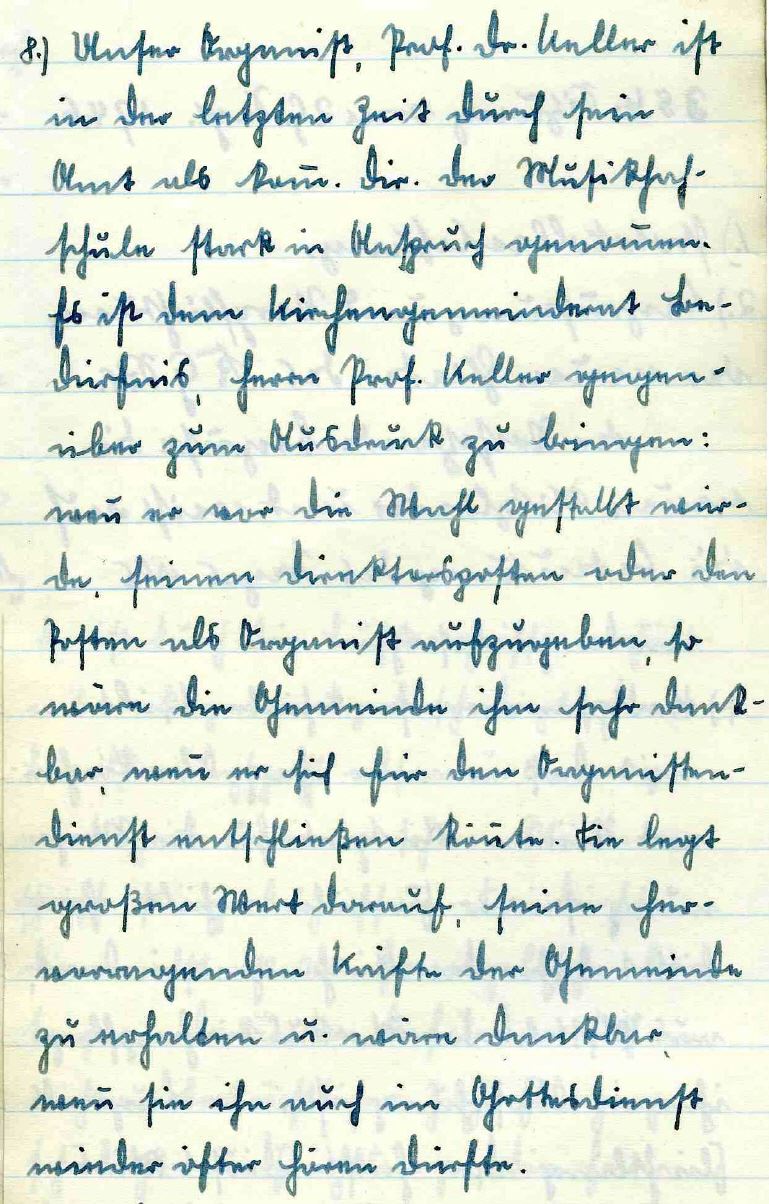 8.) Unser Organist, Prof. Dr. Keller ist
in der letzten Zeit durch sein
Amt als kom̅. Dir. der Musikhoch-
schule stark in Anspruch genom̅en.
Es ist dem Kirchengemeinderat Be-
dürfnis, Herrn Prof. Keller gegen-
über zum Ausdruck zu bringen:
wen̅ er vor die Wahl gestellt wür-
de, seinen Direktorsposten oder den
Posten als Organist aufzugeben, so
wäre die Gemeinde ihm sehr dank-
bar, wen̅ er sich für den Organisten-
dienst entschließen kön̅te. Sie legt
großen Wert darauf, seine her-
vorragenden Kräfte der Gemeinde
zu erhalten u. wäre dankbar,
wen̅ sie ihn auch im Gottesdienst
wieder öfter hören dürfte.